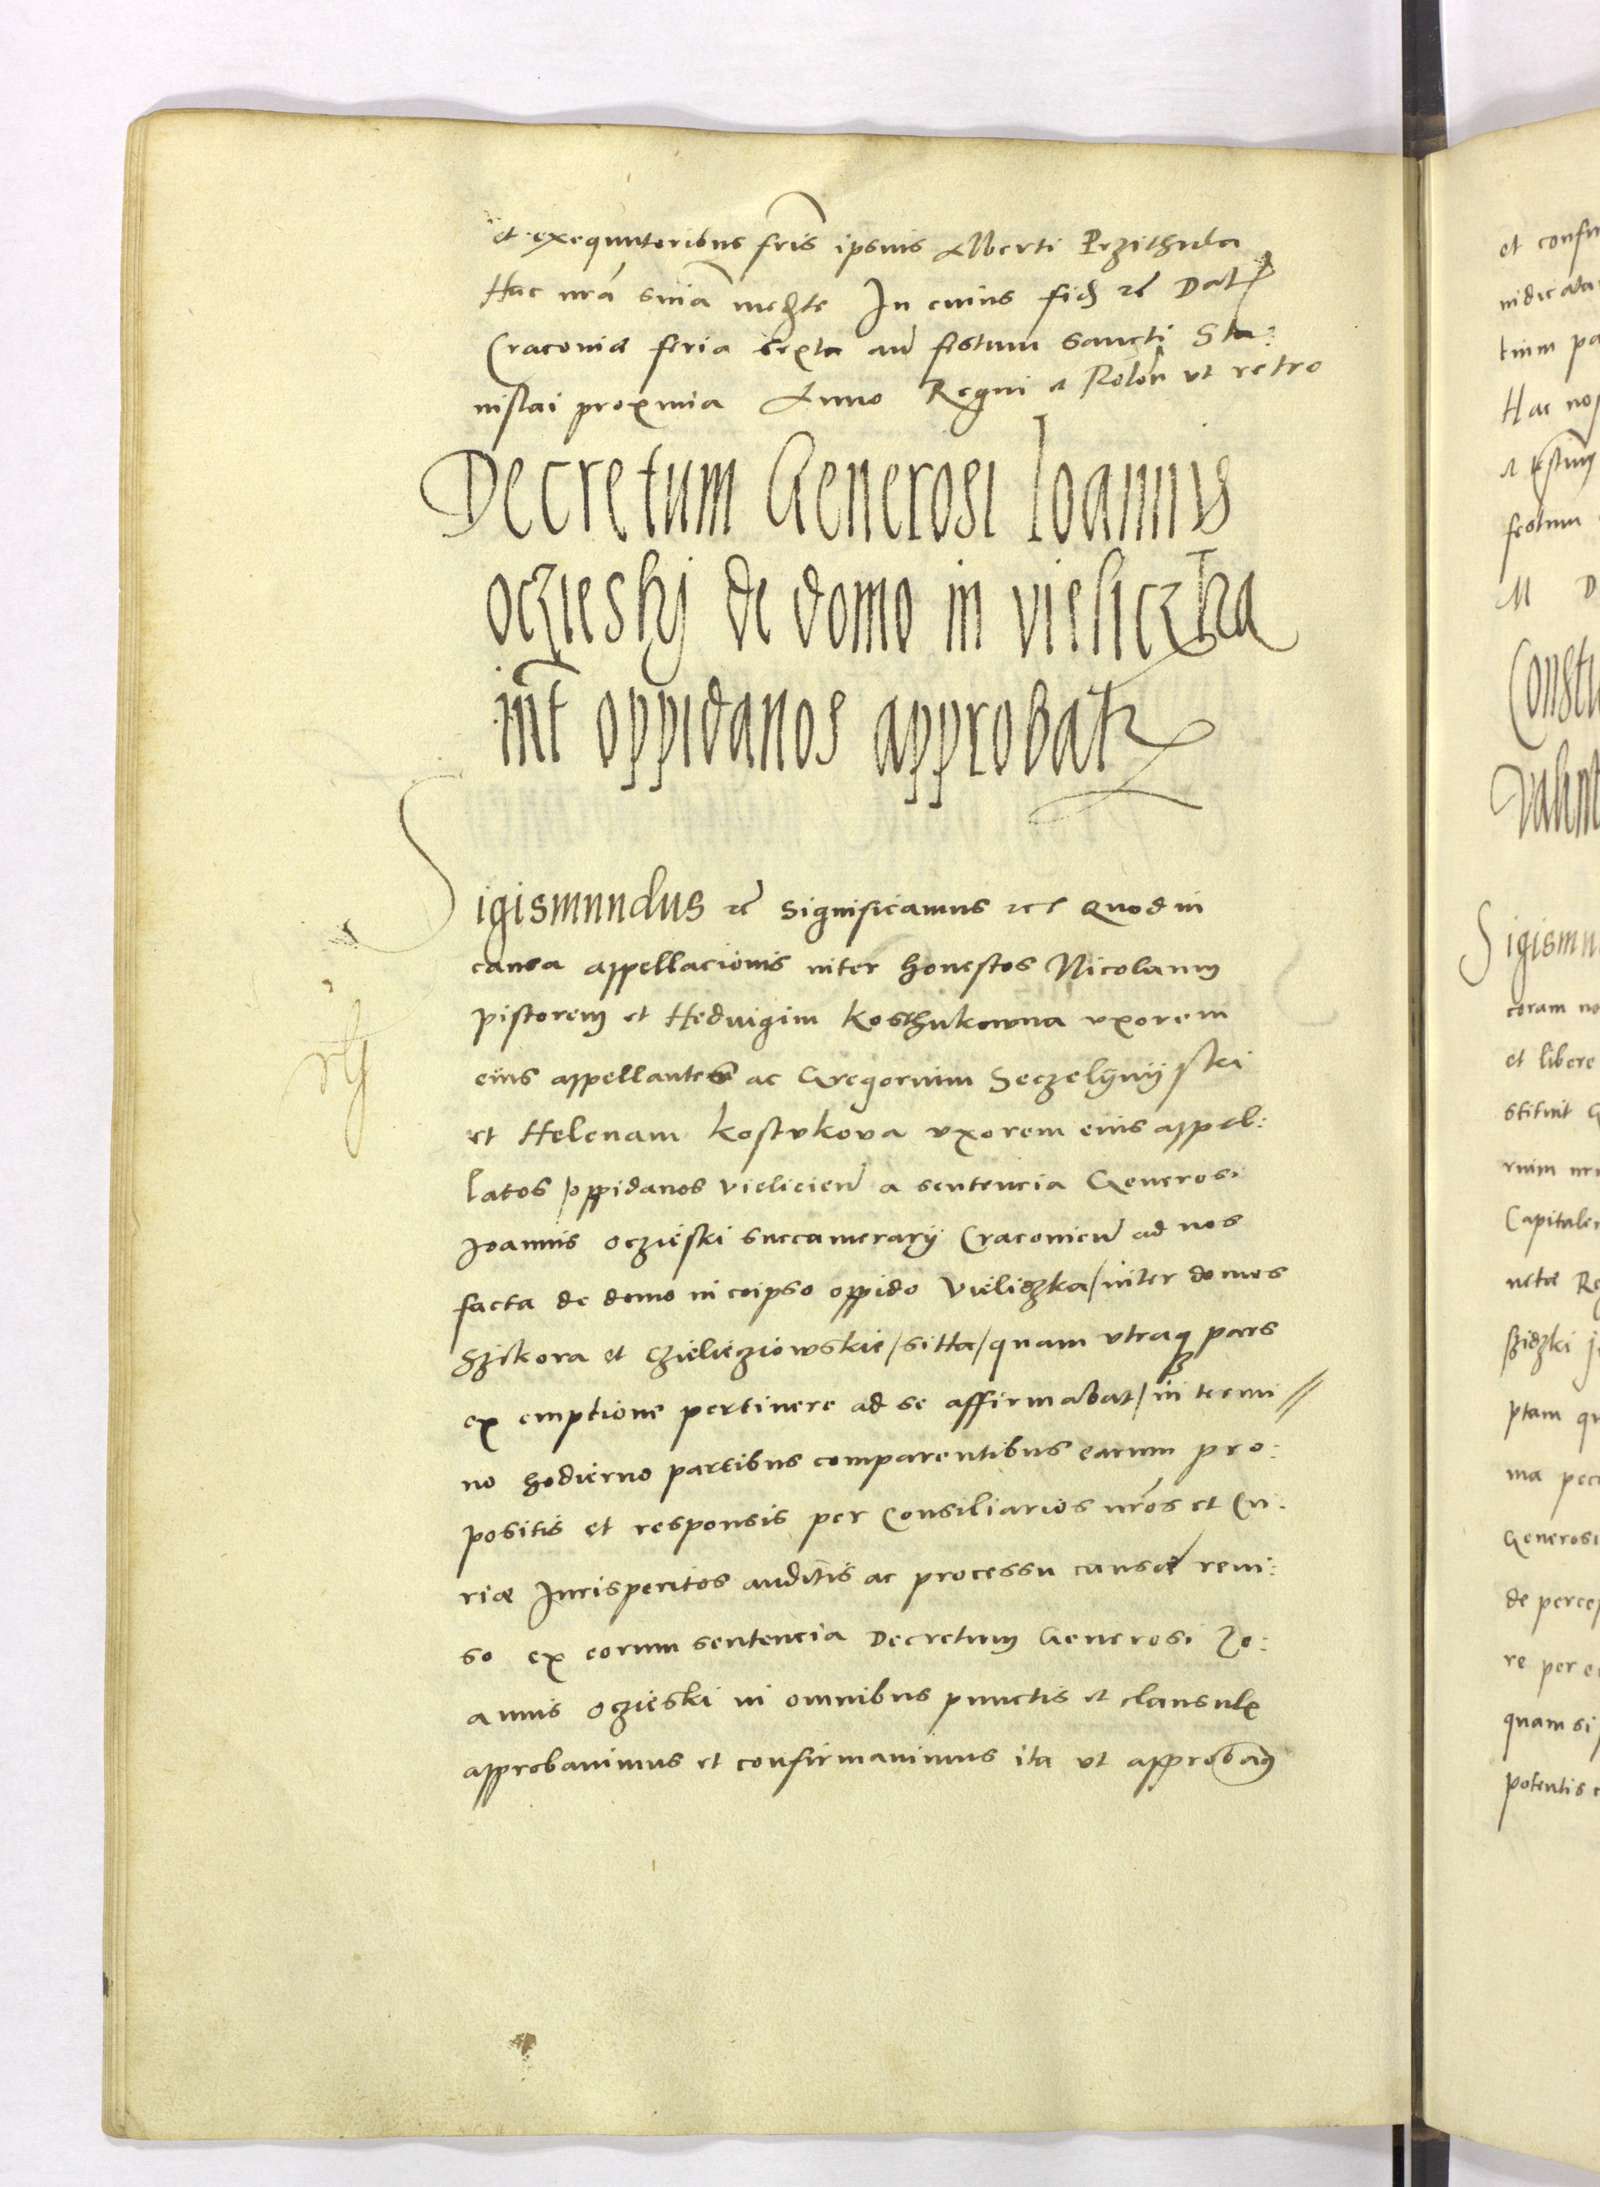 et exequutoribus fris ipsius Alberti Przithula
Hac nra snia medte In cuius fid rc Dat
Cracoviæ feria sexta an festum sancti Sta:
nislai proxima Anno Regni et Polon ut retro
Decretum Generosi Ioannis
oczieskj de domo in vieliczka
int oppidanos approbat
Sigismundus rc Significamus rc Quod in
causa appellacionis inter honestos Nicolaum
pistorem et Heduigim Kosthukowna uxorem
eius appellantes ac Gregorium Seczelgnijski
et Helenam Kostukova uxorem eius appel:
latos / oppidanos vielicien a sentencia Generosi
Joannis Oczieski succamerarij Cracovien ad nos
facta de domo in eoipso oppido Vieliczka / inter domos
Szikora et Czielieziowskie / sitta / quam utraq pars
ex emptione pertinere ad se affirmabat / in termi //
no hodierno partibus comparentibus earum pro:
positis et responsis per Consiliarios nros et Cu:
riæ Jurisperitos auditis ac processu causæ revi:
so ex eorum sentencia Decretum Generosi Jo:
annis Oczieski in omnibus punctis et clausulis
approbavimus et confirmavimus ita ut approbam
et confir
iudicata
tium pa
Hac nos
festum
M D
Constit
Valent
Sigismu
coram no
et libere
stituit G
Capitale
ptam qu
ma pecu
Generosi
de percep
re per e
quam si
potentis